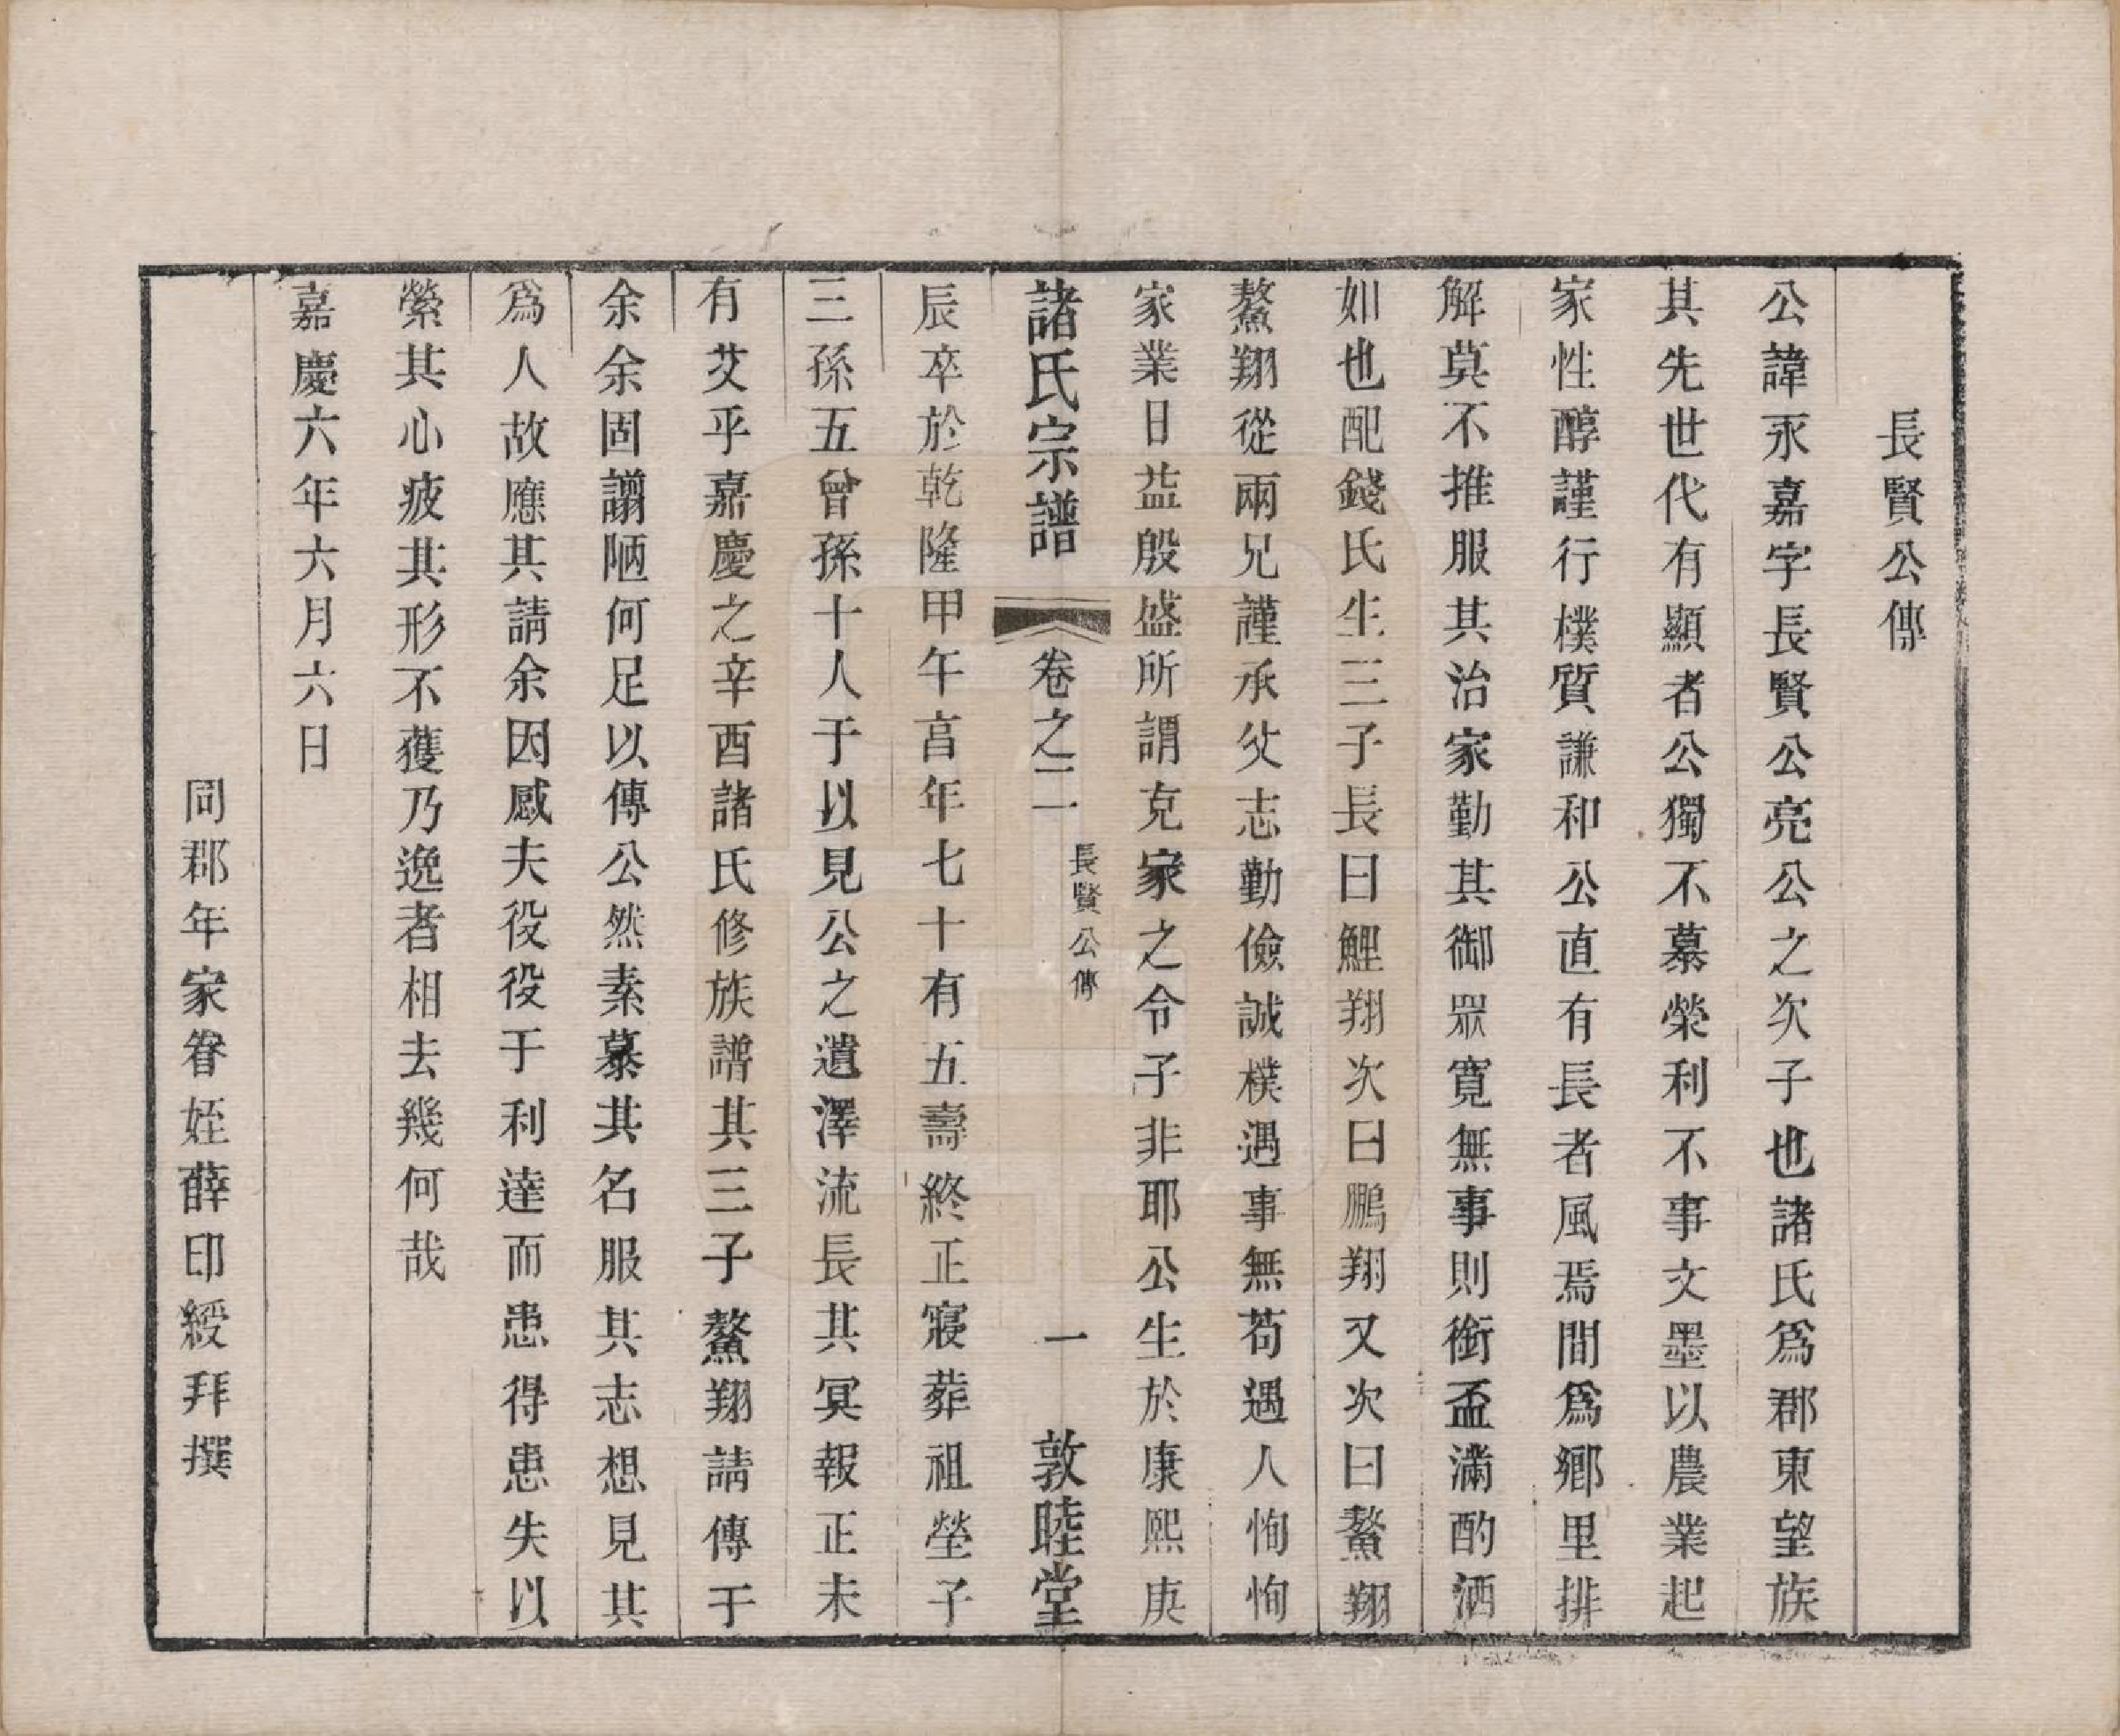 長賢公傳
公諱永嘉字長賢公亮公之次子也諸氏爲郡東望族
其先世代有顯者公獨不慕榮利不事文墨以農業起
家性醇謹行樸質謙和公直有長者風焉間爲鄉里排
解莫不推服其治家勤其御眾寬無事則銜盃滿酌洒
如也配錢氏生三子長曰鯉翔次曰鵬翔又次曰鰲翔
鰲翔從兩兄謹承父志勤儉誠樸遇事無苟遇人恂恂
家業日益殷盛所謂克家之令子非耶公生於康熙庚
諸氏宗譜 卷之二 長賢公傳 一 敦睦堂
辰卒於乾隆甲午亯年七十有五壽終正寢葬祖塋子
三孫五曾孫十人于以見公之遺澤流長其冥報正未
有艾乎嘉慶之辛酉諸氏修族譜其三子鰲翔請傳于
余余固譾陋何足以傳公然素慕其名服其志想見其
爲人故應其請余因感夫役役于利達而患得患失以
縈其心疲其形不獲乃逸者相去幾何哉
嘉慶六年六月六日
同郡年家眷姪薛印綬拜撰